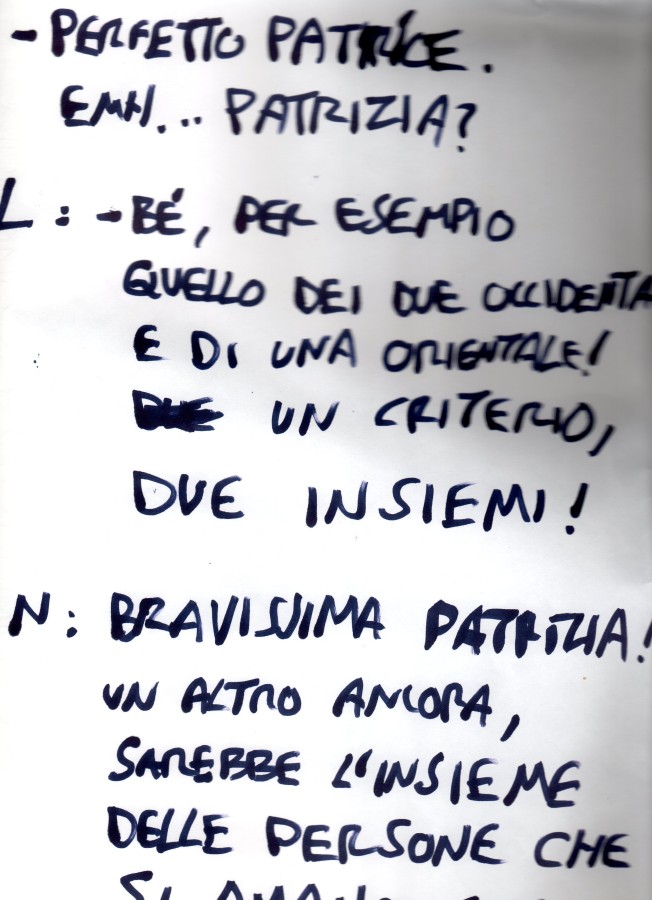 - PERFETTO PATRICE.
EMH... PATRIZIA?
L: - BÉ, PER ESEMPIO
QUELLO DEI DUE OCCIDENTA
E DI UNA ORIENTALE!
UN CRITERIO,
DUE INSIEMI!
N: BRAVISSIMA PATRIZIA!
UN ALTRO ANCORA,
SAREBBE L'INSIEME
DELLE PERSONE CHE
SI AMANO